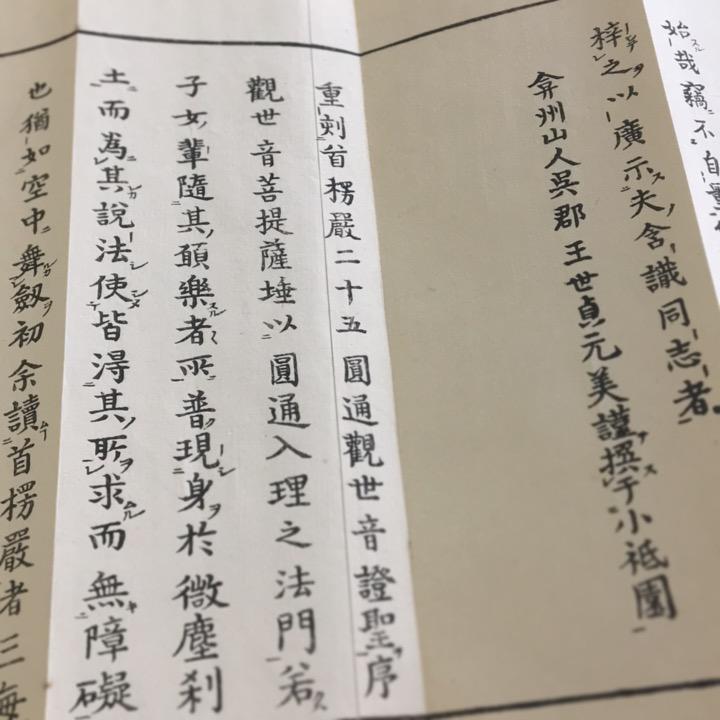 始哉竊不自量
梓之以廣示夫含識同志者
弇州山人吳郡王世貞元美謹撰于小祗園
重刻首楞嚴二十五圓通觀世音證聖序
觀世音菩提薩埵以圓通入理之法門若
子女輩隨其願樂者所普現身於微塵刹
土而為其說法使皆得其所求而無障礙
也猶如空中舞劔初余讀首楞嚴者三